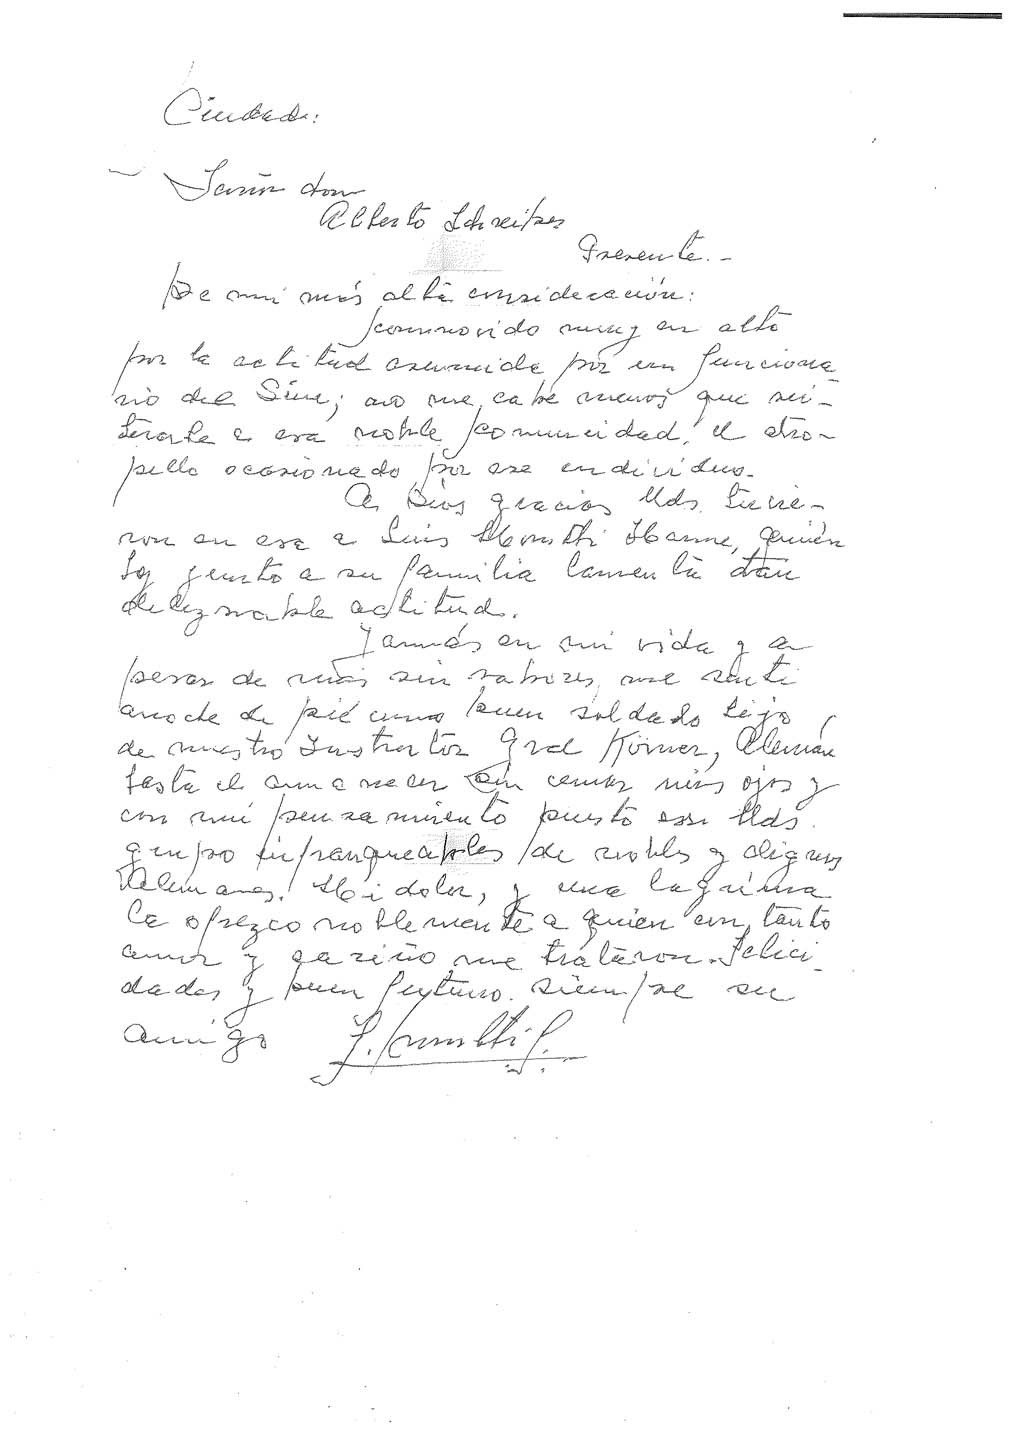 Ciudad:
Señor don
Alberto Schreiber
Presente.-
De mi más alta consideración:
Conmovido muy en alto
por la actitud asumida por un funciona
rio del Sime; no me cabe menos que rei-
terarle a esa noble comunidad, el atro-
pello ocasionado por ese individuo.
A Dios gracias Uds. tuvie-
ron en esa a Luis, quién
hoy junto a su familia lamenta tan
deleznable actitud.
Jamás en mi vida y a
pesar de mis sin sabores, me sentí
anoche de pié como buen soldado hijo,
de nuestro Instructor Gral Körner, Alemán
hasta el amanecer sin cerrar mis ojos y
con mi pensamiento puesto en Uds.
grupo infranqueables de nobles y dignos
Alemanes. Mi dolor, y una lagrima
la ofrezco noblemente a quien con tanto
amor y cariño me trataron. Felici
dades y buen futuro. siempre su
amigo